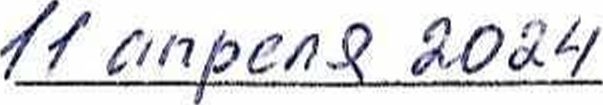 11 апреля 2024